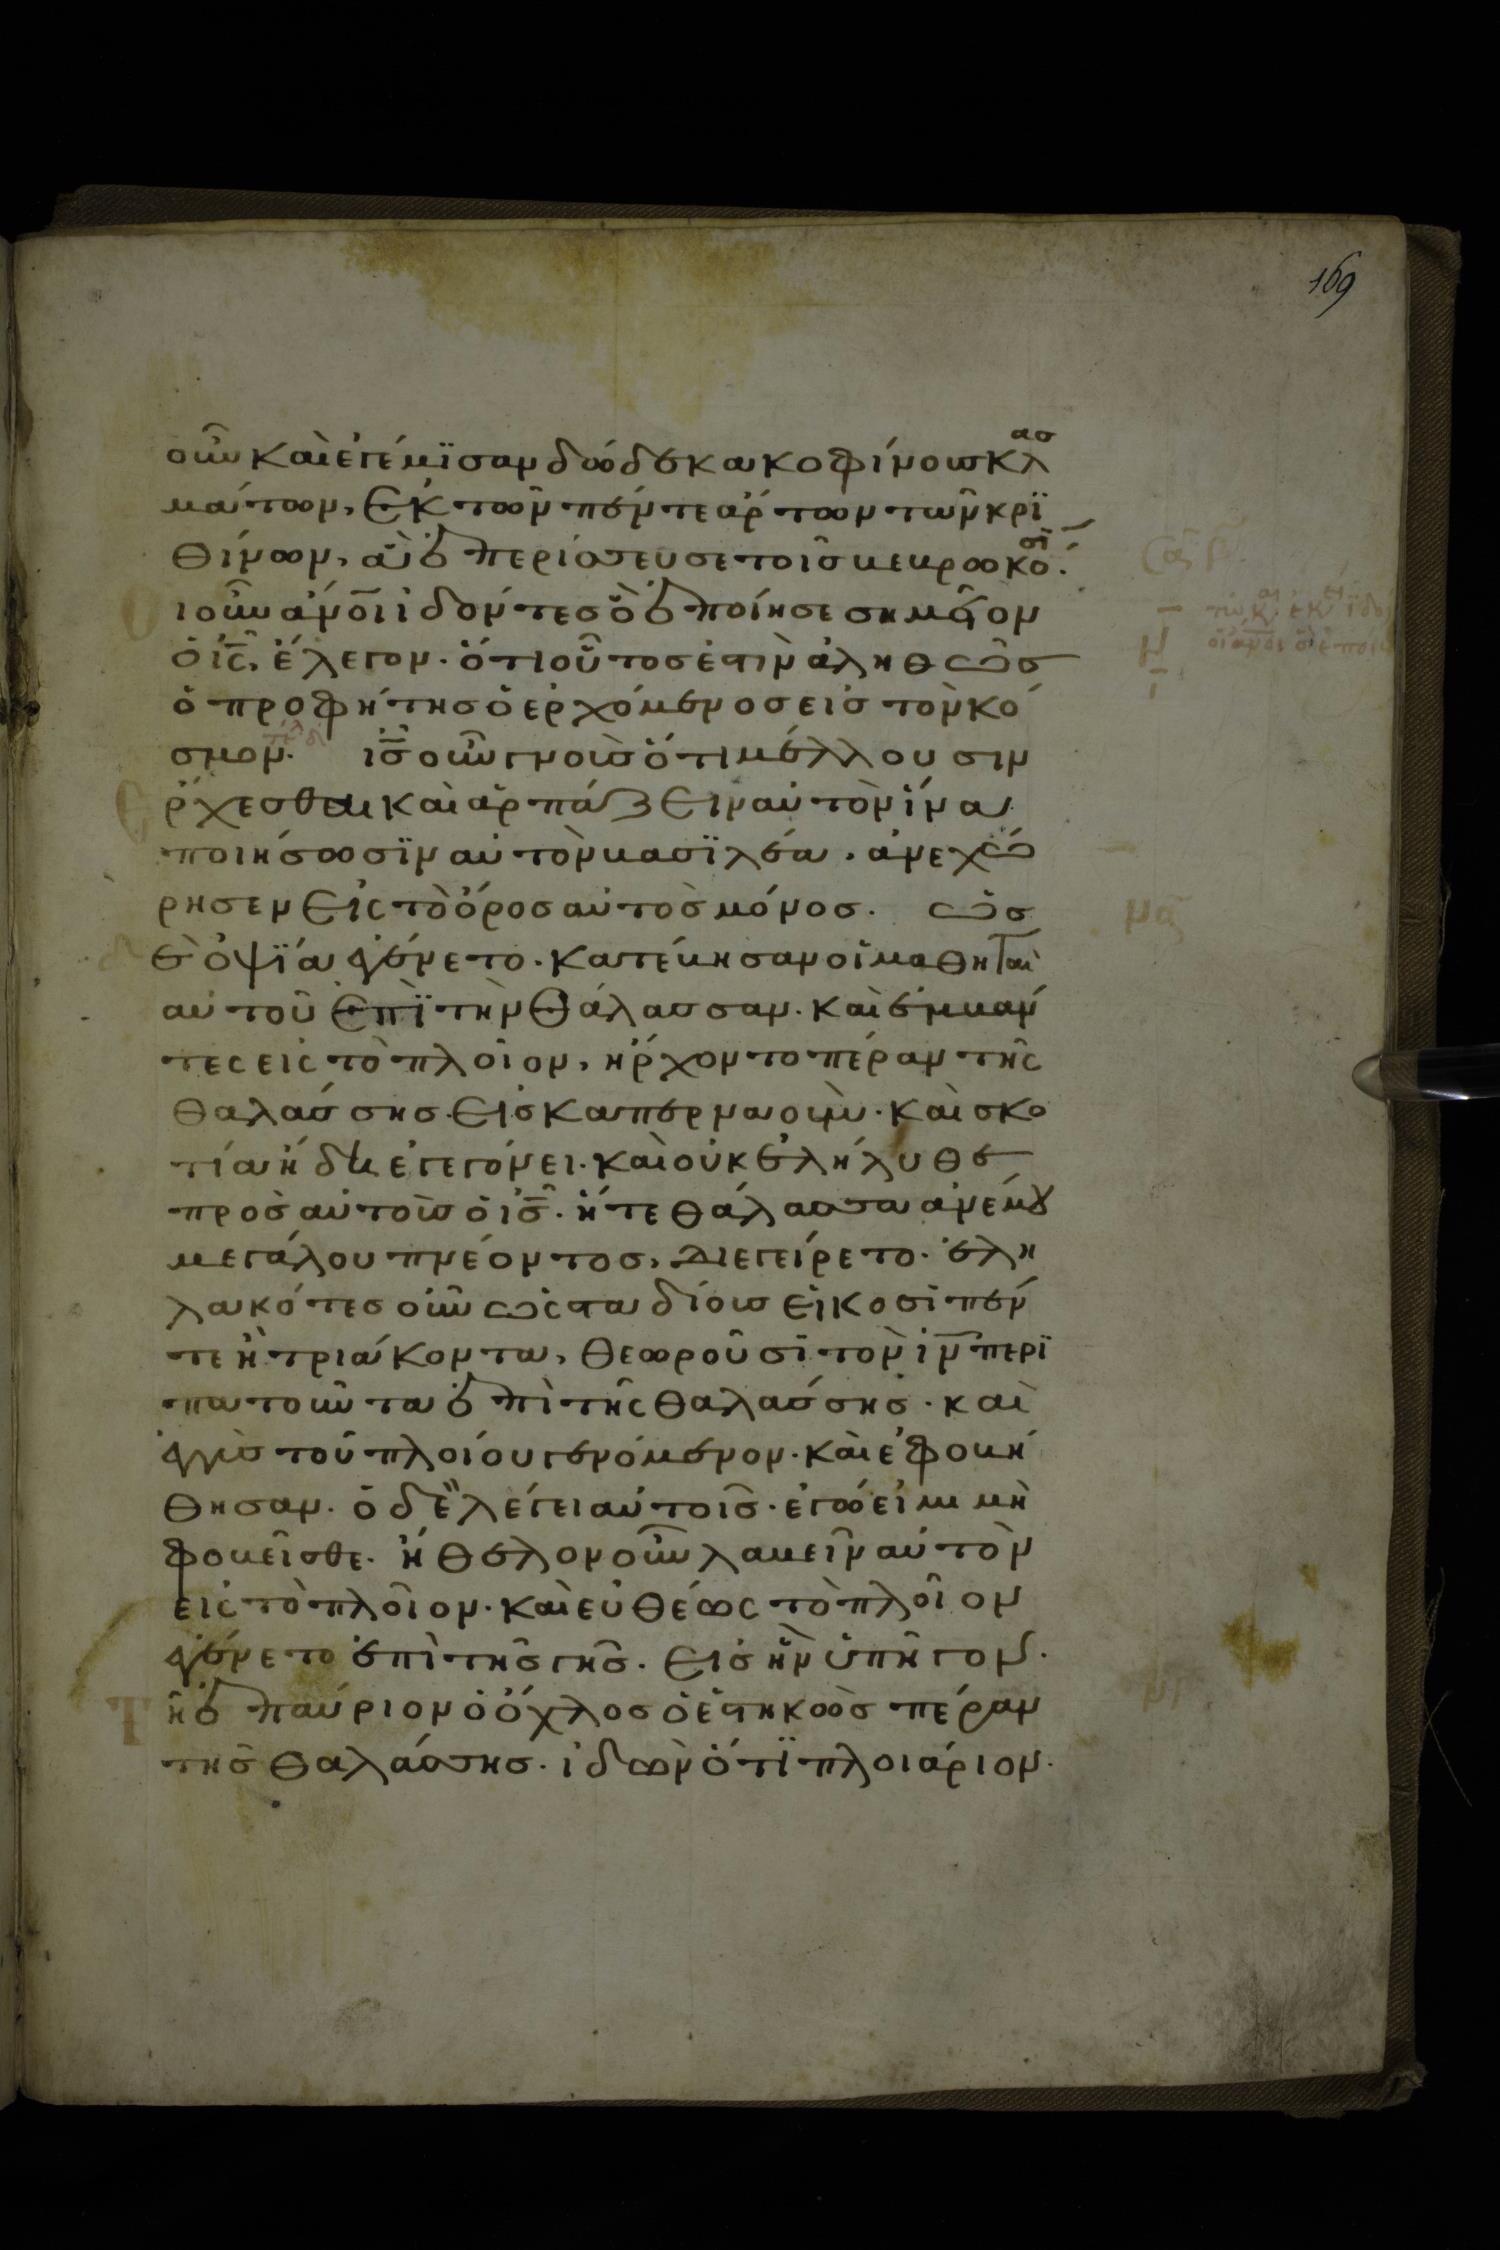 169
οὖν καὶ ἐγέμϊσαν δώδεκα κοφίνους κλασ
μάτων, ἐκ τῶν πέντε ἄρτων τῶν κρϊ
θίνων, ἃ ἐπερίσσευσε τοῖς βεβρωκόσι.
Οἱ οὖν ἄνοι ἰδόντες ὃ ἐποίησε σημεῖον
ὁ ις, ἔλεγον. ὅτι οὗτος ἐστὶν ἀληθῶς
ὁ προφήτης ὁ ἐρχόμενος εἰς τὸν κό
σμον. ις οὖν γνοὺς ὅτι μέλλουσιν
ἔρχεσθαι καὶ ἁρπάζειν αὐτὸν ἵνα
ποιήσωσϊν αὐτὸν βασϊλέα. ἀνεχώ
ρησεν εἰς τὸ ὄρος αὐτὸς μόνος. ὡς
δὲ ὀψΐα ἐγένετο. κατέβησαν οἱ μαθηταὶ
αὐτοῦ ἐπῒ τὴν θάλασσαν. καὶ ἐμβάν
τες εἰς τὸ πλοῖον, ἤρχοντο πέραν τῆς
θαλάσσης εἰς καπερναούμ. καὶ σκο
τία ἤδη ἐγεγόνει. καὶ οὐκ ἐληλύθε
πρὸς αὐτοὺς ὁ ις. ἥ τε θάλασσα ἀνέμου
μεγάλου πνέοντος, διεγείρετο. ἐλη
λακότες οὖν ὡς σταδίους εἴκοσι πέν
τε ἢ τριάκοντα, θεωροῦσι τὸν ιν περϊ
πατοῦντα ἐπὶ τῆς θαλάσσης. καὶ
ἐγγὺς τοῦ πλοίου γενόμενον. καὶ ἐφοβή
θησαν. ὁ δὲ λέγει αὐτοῖς. ἐγώ εἰμι μὴ
φοβεῖσθε. ἤθελον οὖν λαβεῖν αὐτὸν
εἰς τὸ πλοῖον. καὶ εὐθέως τὸ πλοῖον
ἐγένετο ἐπὶ τῆς γῆς. εἰς ἣν ὑπῆγον.
Τῇ ἐπαύριον ὁ ὄχλος ὁ ἑστηκὼς πέραν
τῆς θαλάσσης. ἰδὼν ὅτϊ πλοιάριον.